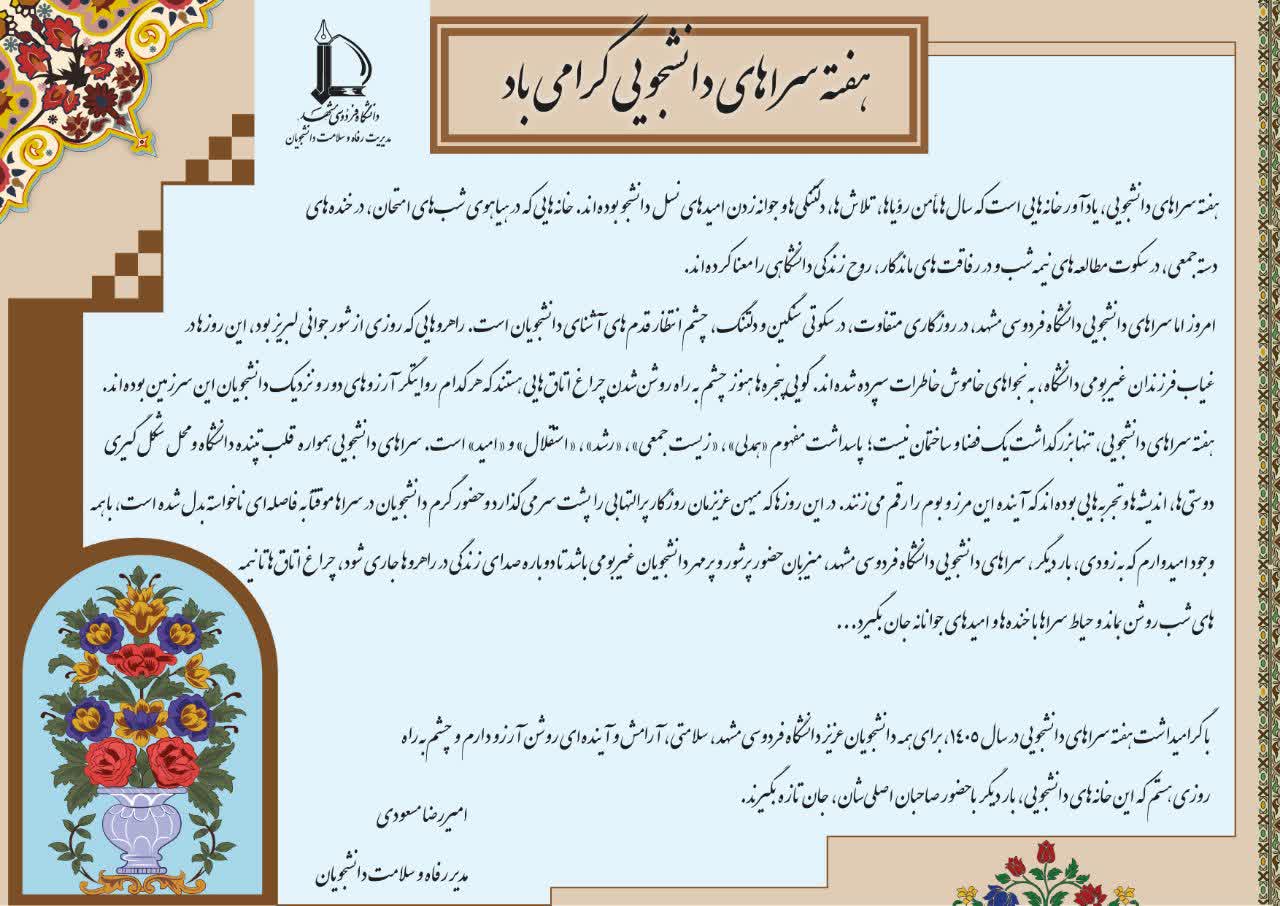 هفته سراهای دانشجویی گرامی باد
دانشگاه فردوسی مشهد
مدیریت رفاه و سلامت دانشجویان
هفته سراهای دانشجویی، یادآور خانه‌هایی است که سال‌ها مأمن رؤیاها، تلاش‌ها، دلتنگی‌ها و جوانه زدن امیدهای نسل دانشجو بوده‌اند. خانه‌هایی که در هیاهوی شب‌های امتحان، در خنده‌های
دسته جمعی، در سکوت مطالعه‌های نیمه شب و در رفاقت‌های ماندگار، روح زندگی دانشگاهی را معنا کرده‌اند.
امروز اما سراهای دانشجویی دانشگاه فردوسی مشهد، در روزگاری متفاوت، در سکوتی سنگین و دلتنگ، چشم انتظار قدم‌های آشنای دانشجویان است. راهروهایی که روزی از شور جوانی لبریز بود، این روزها در
غیاب فرزندان غیربومی دانشگاه، به نجواهای خاموش خاطرات سپرده شده‌اند. گویی پنجره‌ها هنوز چشم به راه روشن شدن چراغ اتاق‌هایی هستند که هر کدام روایتگر آرزوهای دور و نزدیک دانشجویان این سرزمین بوده‌اند.
هفته سراهای دانشجویی، تنها بزرگداشت یک فضا و ساختمان نیست؛ پاسداشت مفهوم «همدلی»، «زیست جمعی»، «رشد»، «استقلال» و «امید» است. سراهای دانشجویی همواره قلب تپنده دانشگاه و محل شکل گیری
دوستی‌ها، اندیشه‌ها و تجربه‌هایی بوده‌اند که آینده این مرز و بوم را رقم می‌زنند. در این روزها که میهن عزیزمان روزگار پرالتهابی را پشت سر می‌گذارد و حضور گرم دانشجویان در سراها موقتاً به فاصله‌ای ناخواسته بدل شده است، با همه
وجود امیدوارم که به زودی، بار دیگر، سراهای دانشجویی دانشگاه فردوسی مشهد، میزبان حضور پرشور و پرمهر دانشجویان غیربومی باشد تا دوباره صدای زندگی در راهروها جاری شود، چراغ اتاق‌ها تا نیمه
های شب روشن بماند و حیاط سراها با خنده‌ها و امیدهای جوانانه جان بگیرد...
با گرامیداشت هفته سراهای دانشجویی در سال ۱۴۰۵، برای همه دانشجویان عزیز دانشگاه فردوسی مشهد، سلامتی، آرامش و آینده‌ای روشن آرزو دارم و چشم به راه
روزی هستم که این خانه‌های دانشجویی، بار دیگر با حضور صاحبان اصلی‌شان، جان تازه بگیرند.
امیررضا مسعودی
مدیر رفاه و سلامت دانشجویان